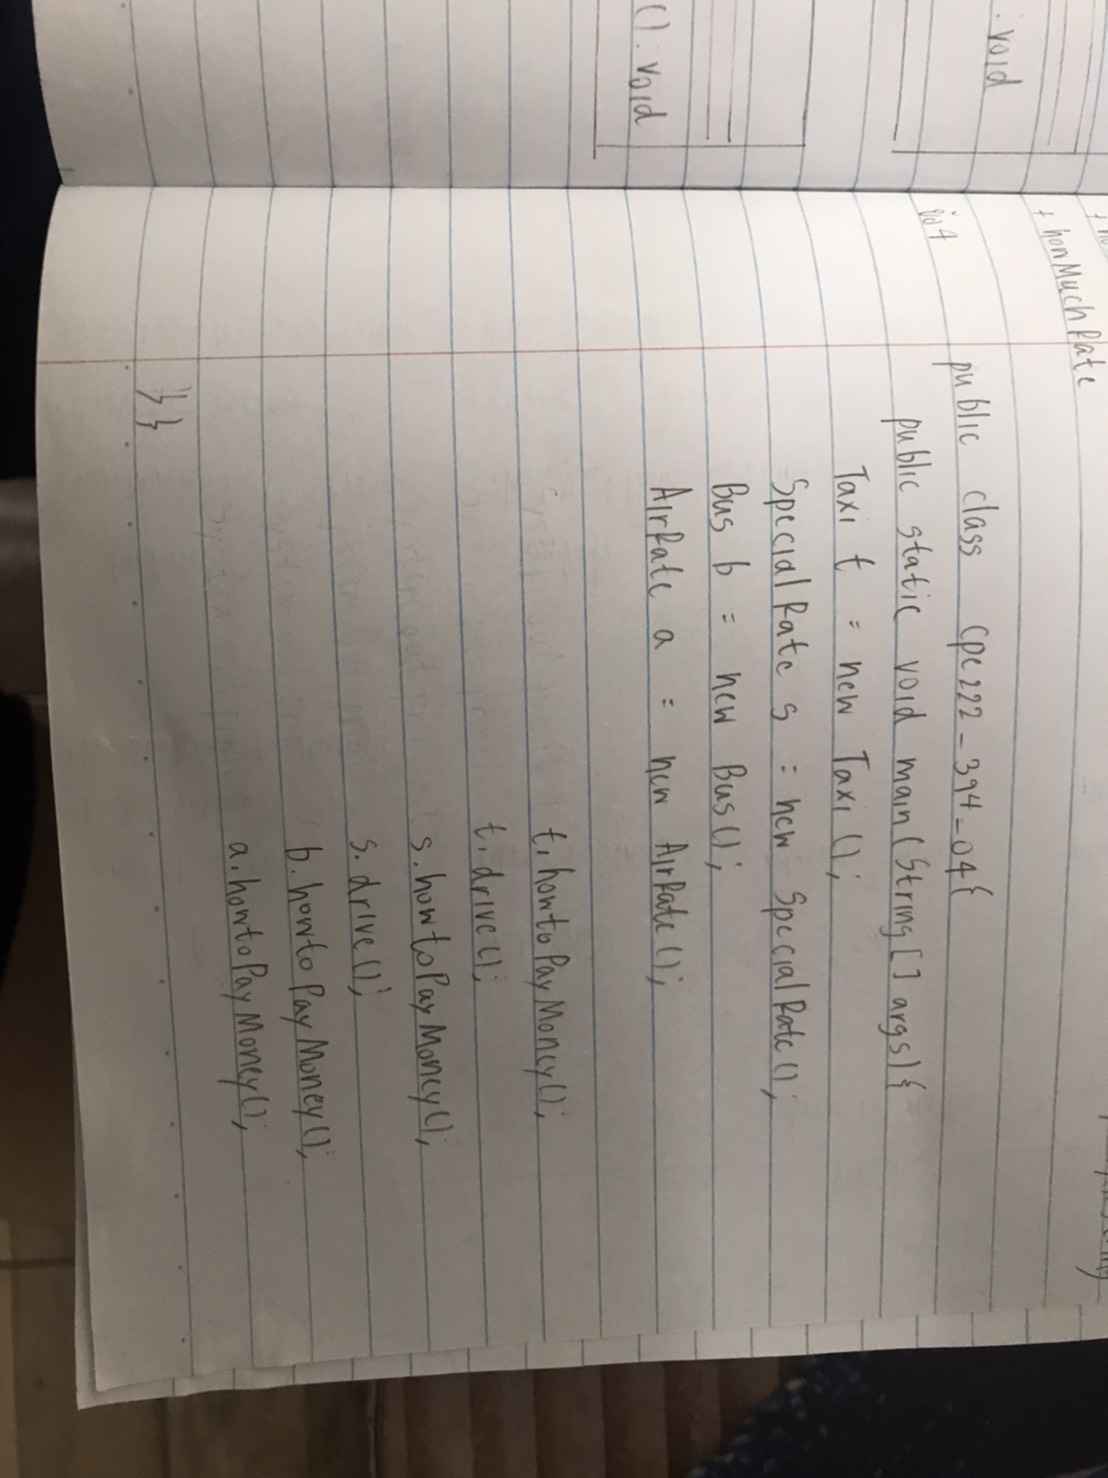 (). void
: void
+ honMuchRate
ข้อ 4
public class cpe222_394_04{
public static void main(String[] args){
Taxi t = new Taxi();
SpecialRate s = new SpecialRate();
Bus b = new Bus();
AirRate a = new AirRate();
t.howtoPayMoney();
t.drive();
s.howtoPayMoney();
s.drive();
b.howtoPayMoney();
a.howtoPayMoney();
}}